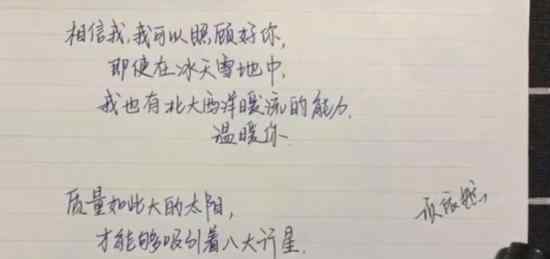 相信我,我可以照顾好你,
即使在冰天雪地中,
我也有北大西洋暖流的能力.
温暖你.
质量如此大的太阳,
才能够吸引着八大行星.